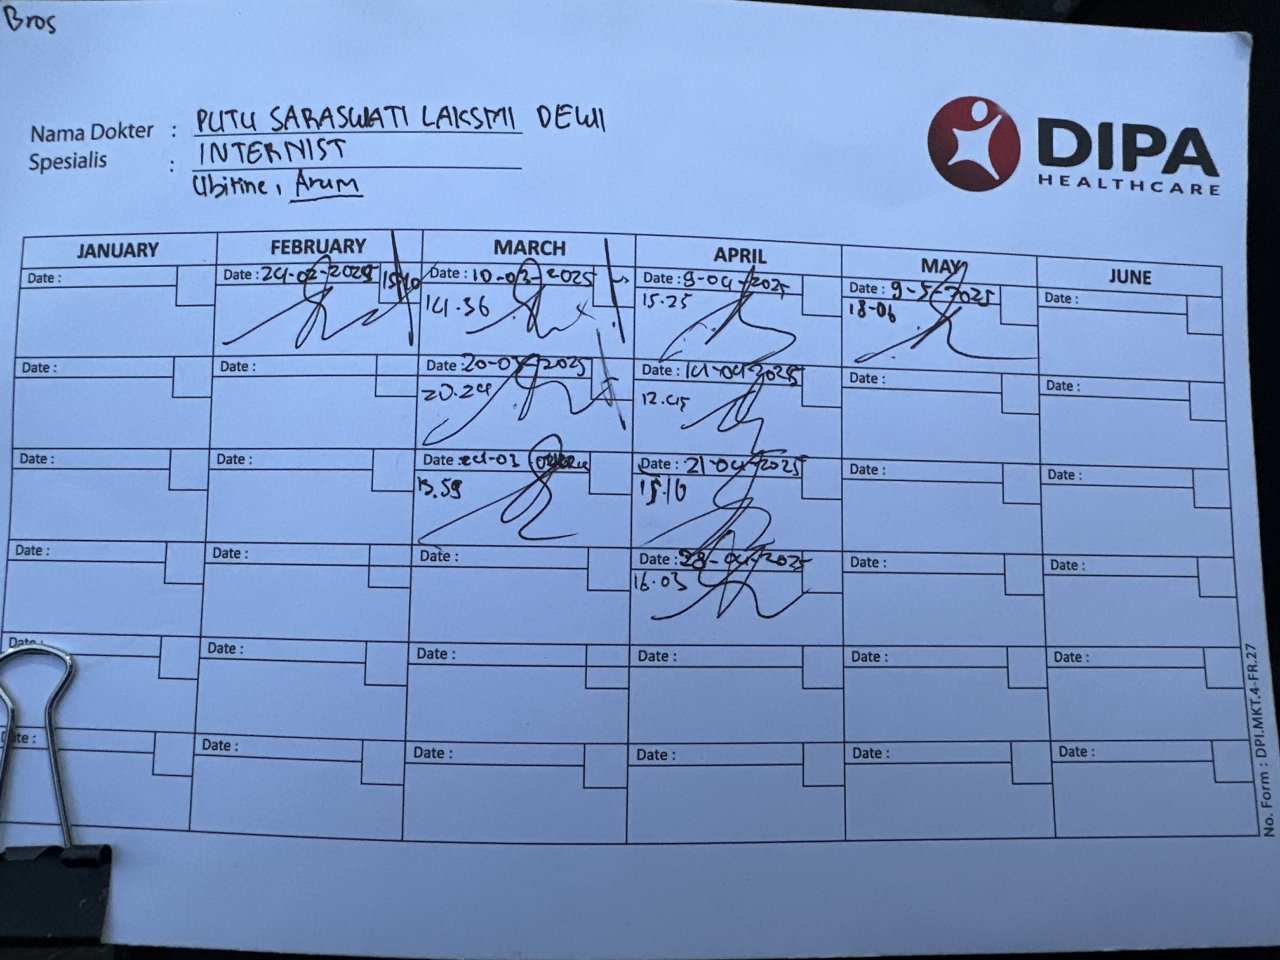 Bros
Nama Dokter : PUTU SARASWATI LAKSMI DEWI
Spesialis : INTERNIST
Ubitine, Arum
DIPA
HEALTHCARE
JANUARY FEBRUARY MARCH APRIL MAY JUNE
Date : Date : 24-02-2025 15.10 Date : 10-03-2025 Date : 9-04-2025 Date : 9-5-2025 Date :
14.36 15.25 18-06
Date : Date : Date : 20-03-2025 Date : 14-04-2025 Date : Date :
20.24 12.45
Date : Date : Date : 24-03 Date : 21-04-2025 Date : Date :
15.16
Date : Date : Date : Date : 28-04-2025 Date : Date :
16.03
Date : Date : Date : Date : Date : Date :
Date : Date : Date : Date : Date : Date :
No. Form : DPI.MKT.4-FR.27